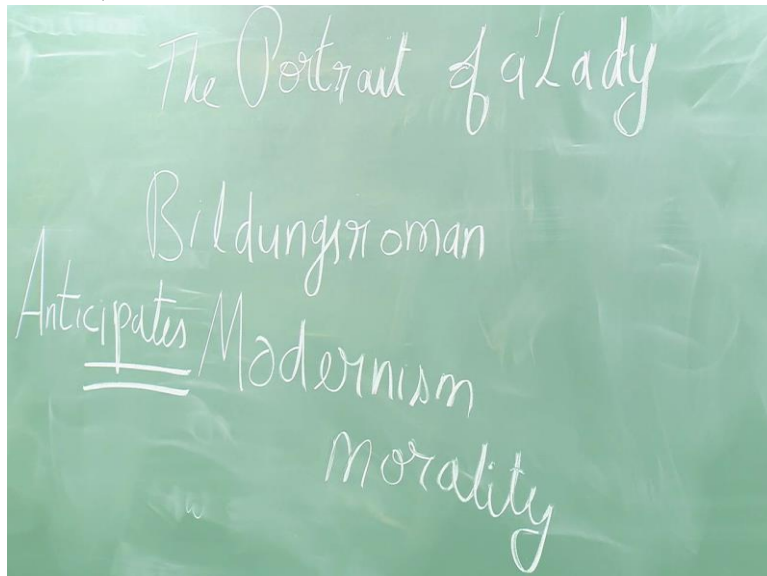 The Portrait of a Lady
Bildungsroman
Anticipates Modernism
Morality